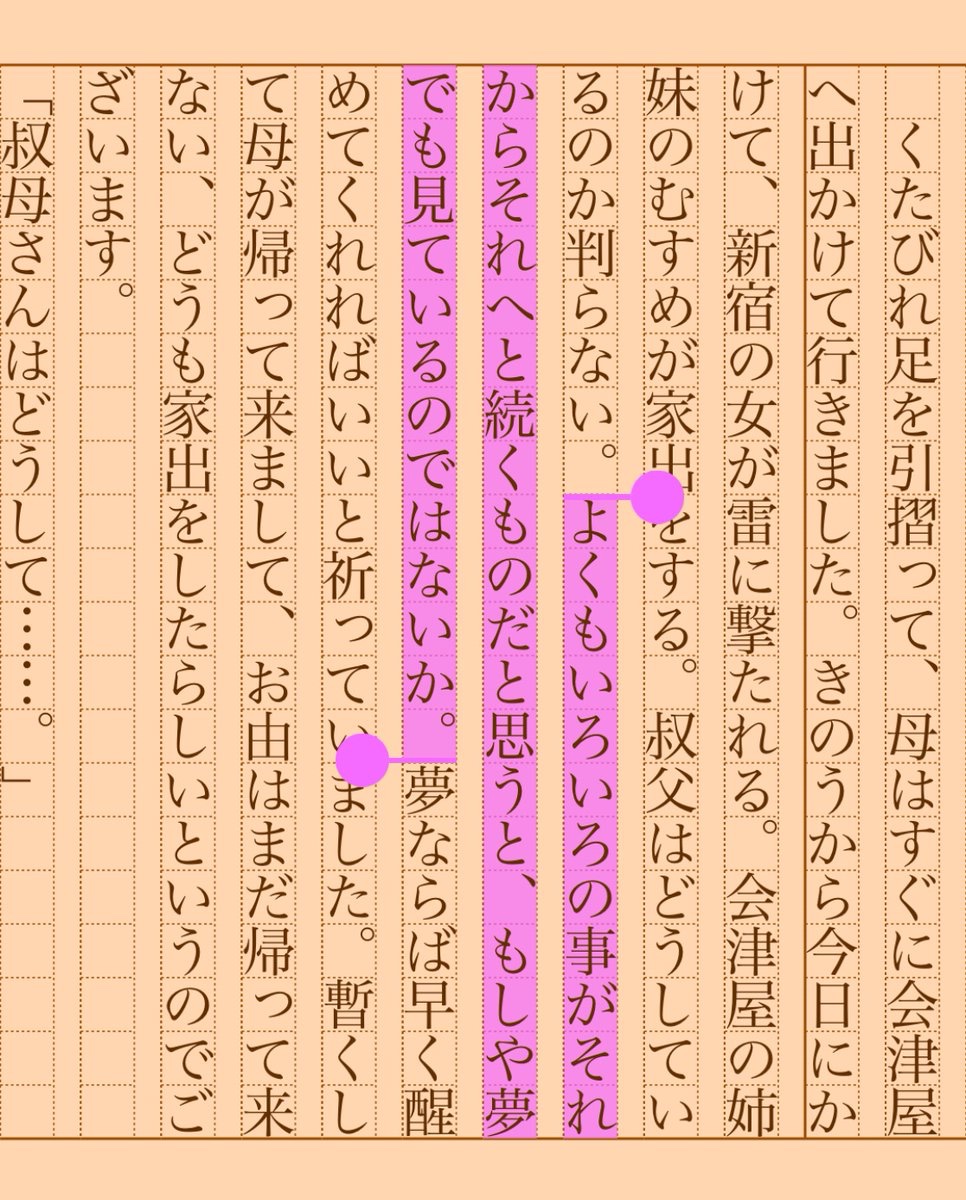 くたびれ足を引摺って、母はすぐに会津屋
へ出かけて行きました。きのうから今日にか
けて、新宿の女が雷に撃たれる。会津屋の姉
妹のむすめが家出をする。叔父はどうしてい
るのか判らない。よくもいろいろの事がそれ
からそれへと続くものだと思うと、もしや夢
でも見ているのではないか。夢ならば早く醒
めてくれればいいと祈っていました。暫くし
て母が帰って来まして、お由はまだ帰って来
ない、どうも家出をしたらしいというのでご
ざいます。
「叔母さんはどうして……。」